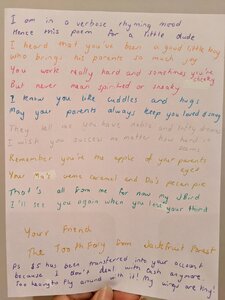 I am in a verbose rhyming mood
Hence this poem for a little dude
I heard that you've been a good little boy
who brings his parents so much joy
You work really hard and sometimes you're cheeky
But never mean spirited or sneaky
I know you like cuddles and hugs
May your parents always keep you loved & snug
They tell me you have noble and lofty dreams
I wish you success no matter how hard it seems
Remember you're the apple of your parents eyes
Your Ma's creme caramel and Da's pecan pie
That's all from me for now my JBird
I'll see you again when you lose your third
Your Friend
The Tooth Fairy from Jackfruit Forest
PS $5 has been transferred into your account
because I don't deal with cash anymore
Too heavy to fly around with it! My wings are tiny!